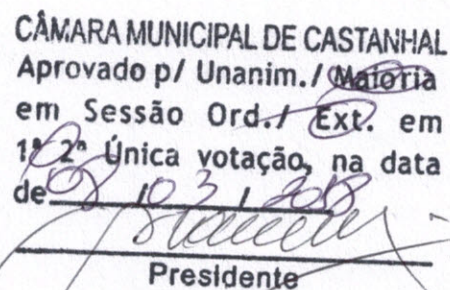 CÂMARA MUNICIPAL DE CASTANHAL
Aprovado p/ Unanim./ Maioria
em Sessão Ord./ Ext. em
1ª 2ª Única votação, na data
de 08 / 03 / 2018
Presidente